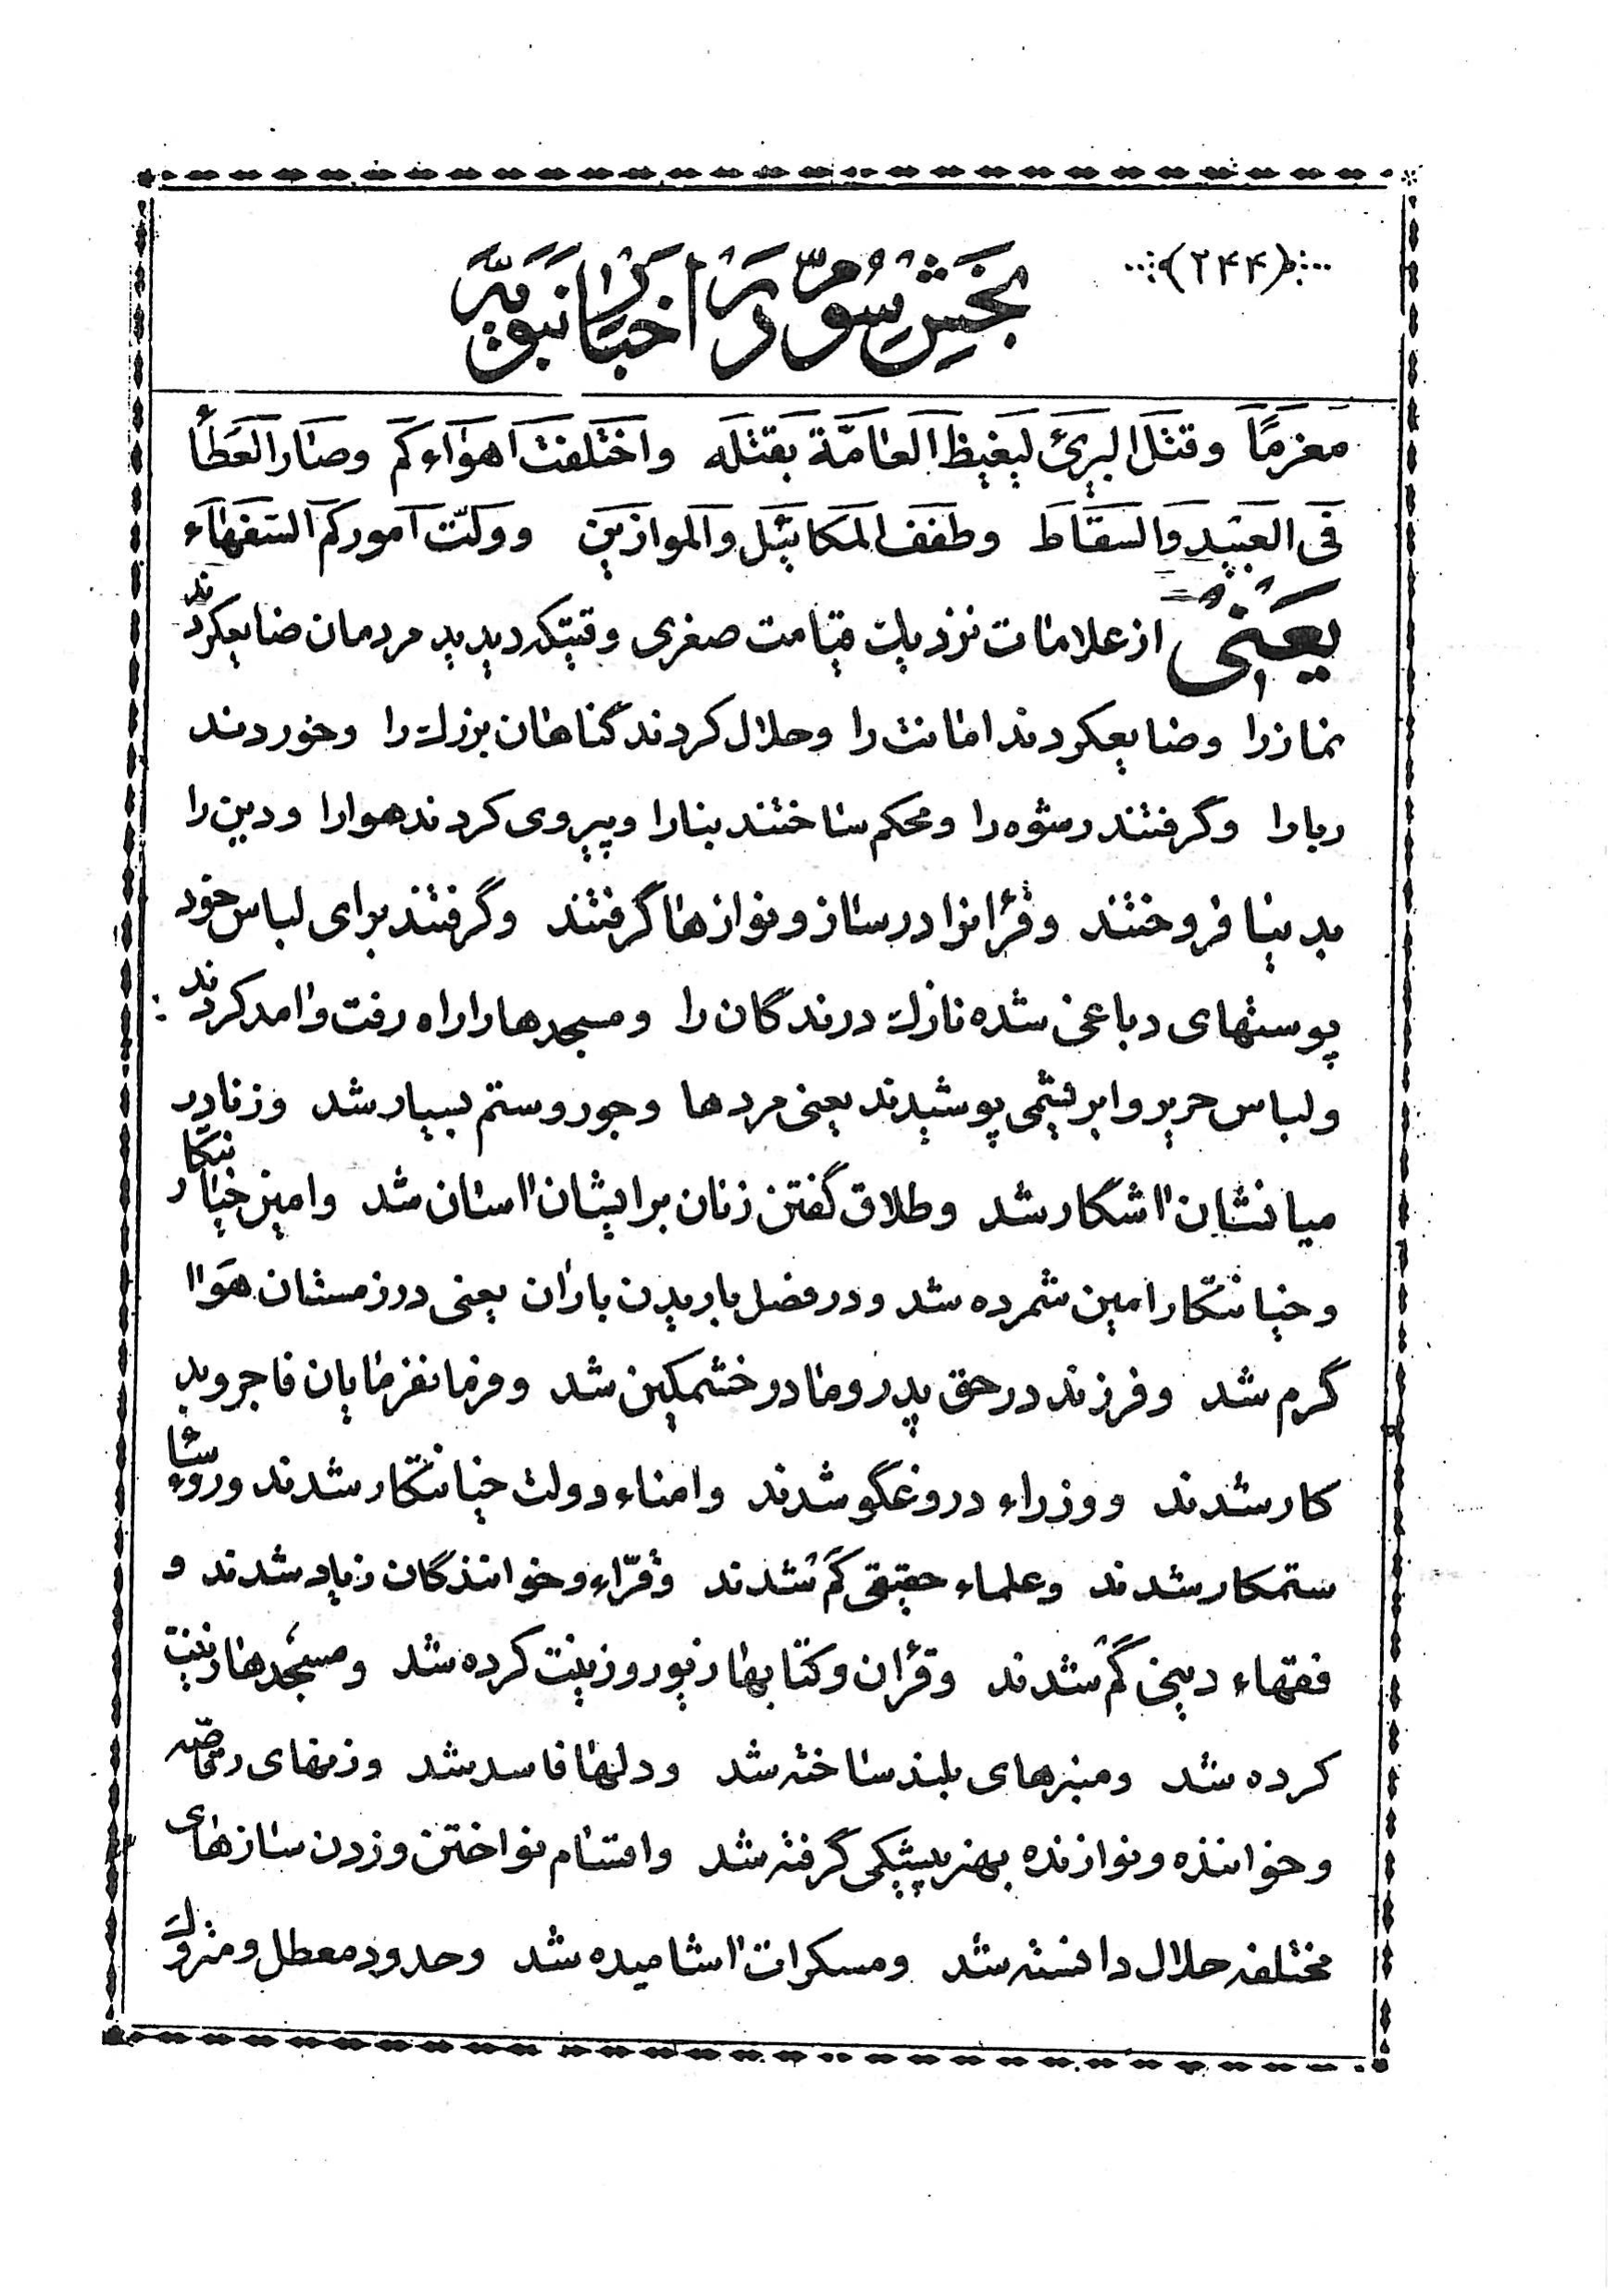 (۲۴۴)
بخش سوّم در اخبار نبویّه
مغرمًا وقتل البرئ لیغیظ العامّة بقتله واختلفت اهواءکم وصار العطاء
فی العبید والسقاط وطفف المکائیل والموازین وولّت امورکم السفهاء
یعنی از علامات نزدیک قیامت صغری وقتیکه دیدید مردمان ضایعکردند
نماز را وضایعکردند امانت را وحلال کردند گناهان بزرک را وخوردند
ربارا وگرفتند رشوه را ومحکم ساختند بنارا وپیروی کردند هوارا ودین را
بدنیا فروختند وقرانرا در ساز ونوازها گرفتند وگرفتند برای لباس خود
پوستهای دباغی شده نازک درندگان را ومسجدها را راه رفت وامد کردند
ولباس حریر وابریشمی پوشیدند یعنی مردها وجور وستم بسیار شد وزنا در
میانشان اشکار شد وطلاق گفتن زنان برایشان اسان شد وامین خیانتکار
وخیانتکار امین شمرده شد ودر فصل باریدن باران یعنی در زمستان هوا
گرم شد وفرزند در حق پدر ومادر خشمگین شد وفرمانفرمایان فاجر وبد
کار شدند ووزراء دروغگو شدند وامناء دولت خیانتکار شدند ورؤساء
ستمکار شدند وعلماء حقیقی کم شدند وقرّاء وخوانندگان زیاد شدند و
فقهاء دینی گم شدند وقران وکتابها زیور وزینت کرده شد ومسجدها زینت
کرده شد ومنبرهای بلند ساخته شد ودلها فاسد شد وزنهای رقّاصه
وخواننده ونوازنده بهنرپیشگی گرفته شد واقسام نواختن وزدن سازهای
مختلفه حلال دانسته شد ومسکرات اشامیده شد وحدود معطل ومتروک